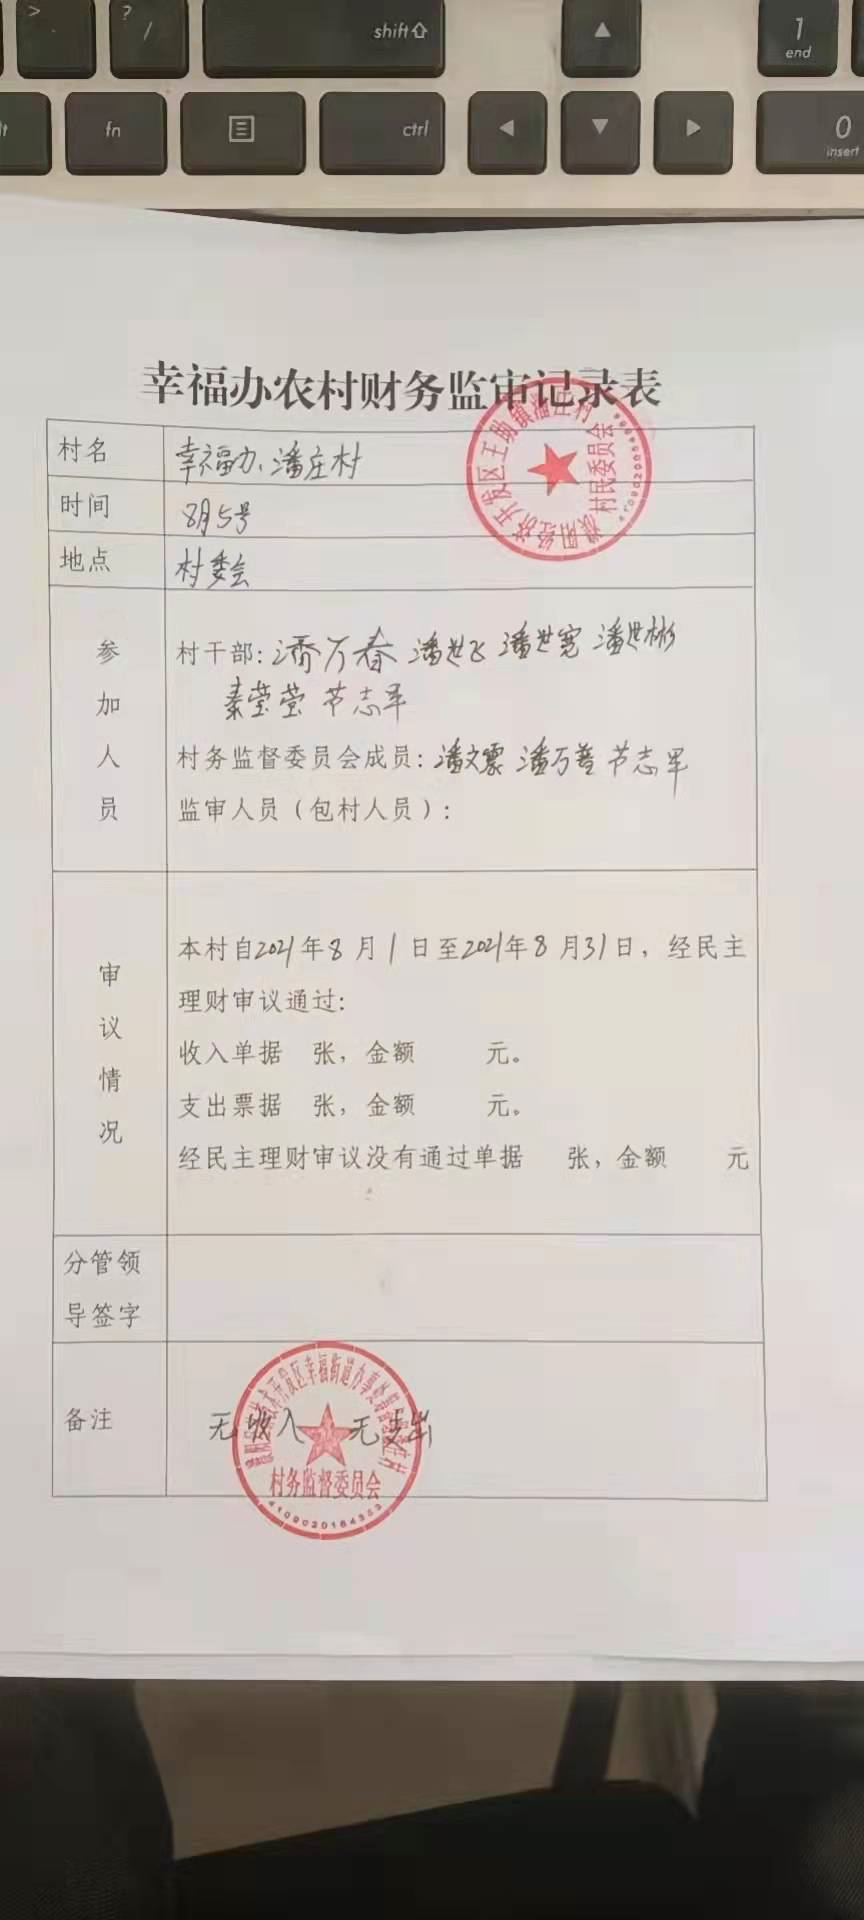 > .
? /
shift
1
end
fn
ctrl
0
insert
幸福办农村财务监审记录表
村名 幸福办、潘庄村
时间 8月5号
地点 村委会
参加人员
村干部:潘万春 潘世飞 潘世宽 潘世彬
秦莹莹 节志军
村务监督委员会成员:潘文震 潘万普 节志军
监审人员(包村人员):
审议情况
本村自2021年8月1日至2021年8月31日,经民主
理财审议通过:
收入单据 张,金额 元。
支出票据 张,金额 元。
经民主理财审议没有通过单据 张,金额 元
分管领
导签字
备注 无收入 无支出
濮阳经济开发区王助镇潘庄村
村民委员会
村务监督委员会
4109020164353